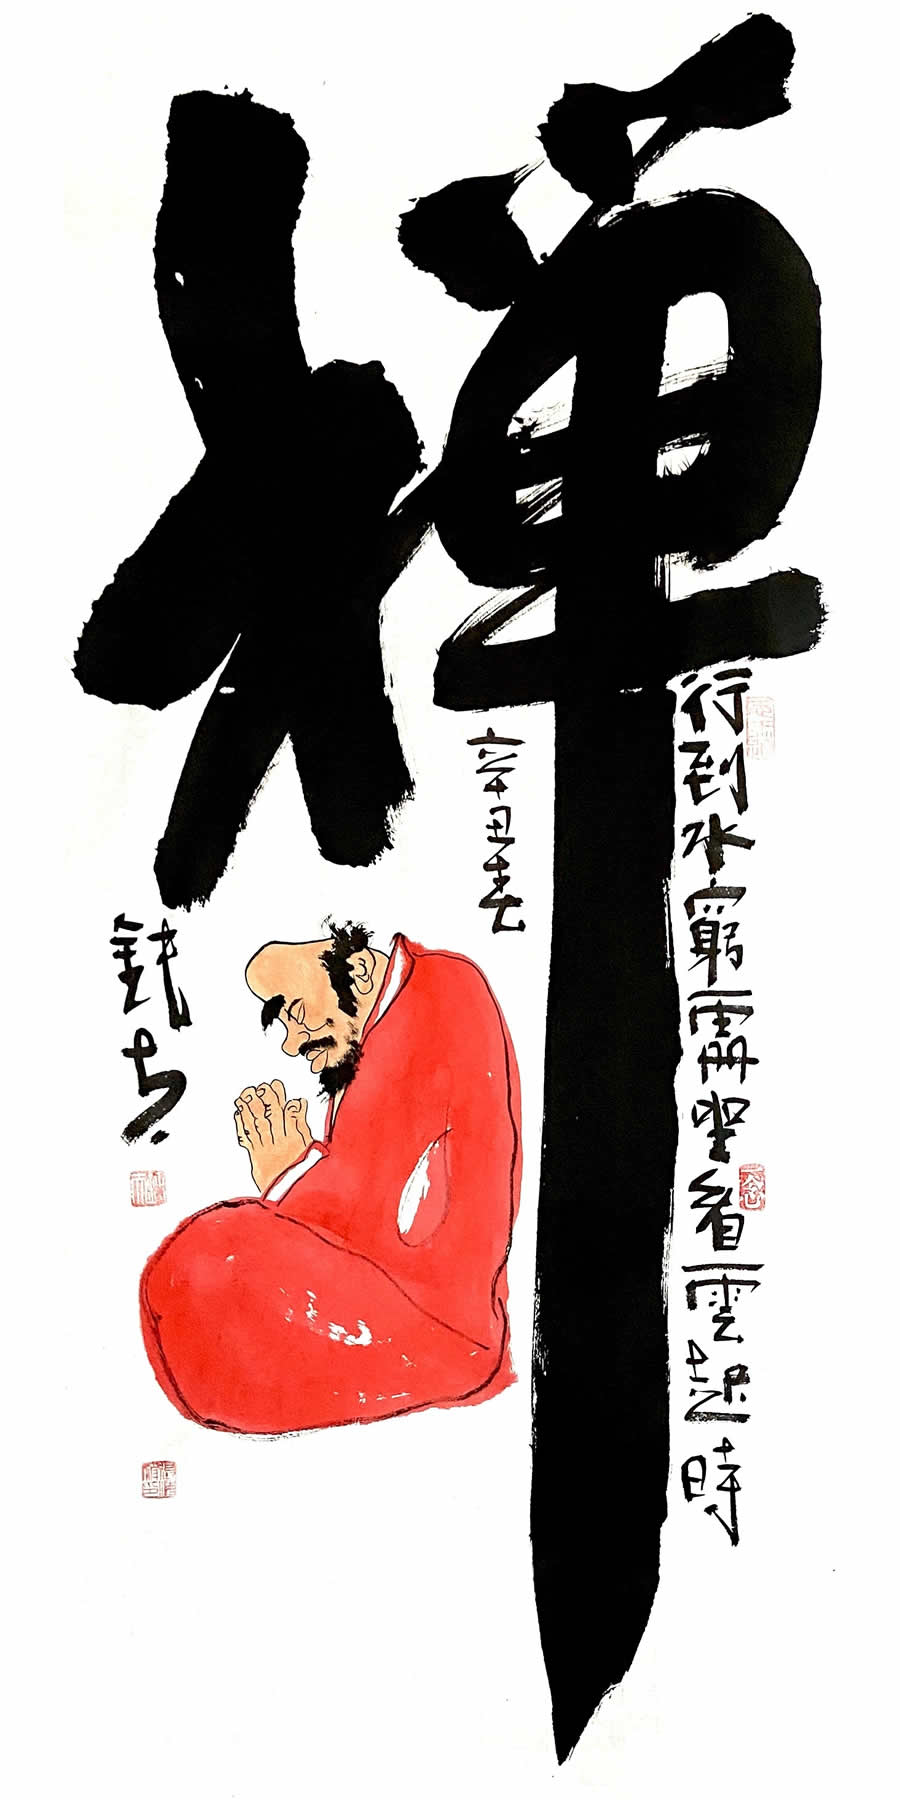 禅
行到水窮處坐看雲起時
辛丑春